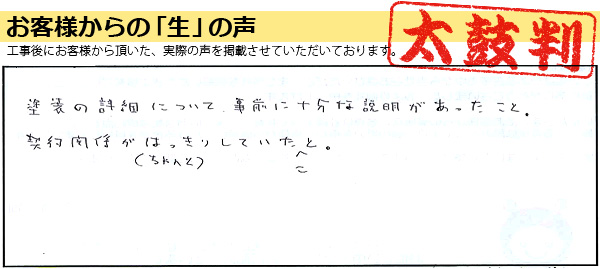 お客様からの「生」の声
太鼓判
工事後にお客様から頂いた、実際の声を掲載させていただいております。
塗装の詳細について、事前に十分な説明があったこと。
契約関係がはっきりしていたこと。
(ちゃんと)